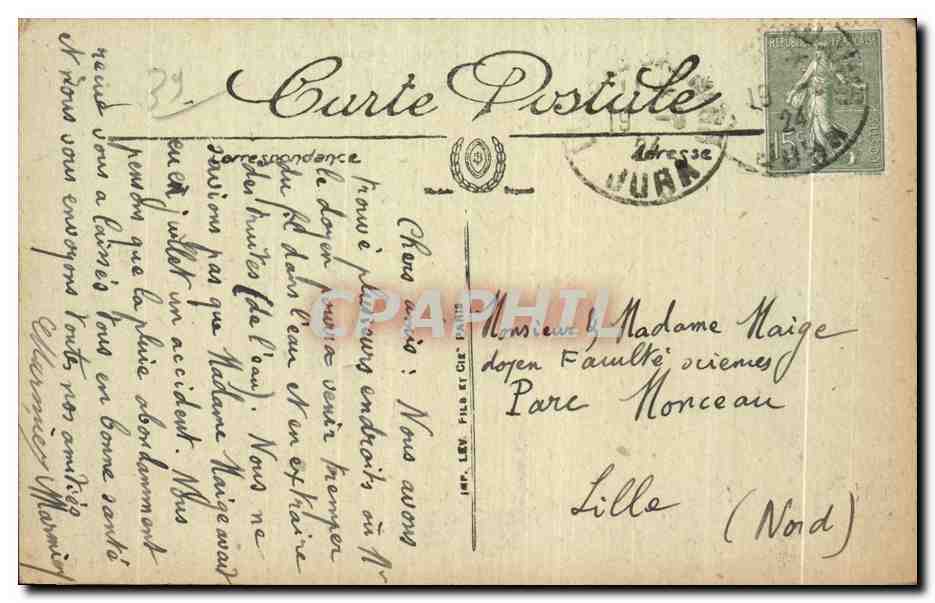 39
Carte Postale
Correspondance
Adresse
REPUBLIQUE FRANCAISE
15
19 -8
24
JURA
19
24
JURA
Chers amis : Nous avons
trouvé plusieurs endroits où Mr
le doyen pourra venir tremper
du fil dans l'eau et en extraire
des truites (de l'eau). Nous ne
savions pas que Madame Maige avait
eu en juillet un accident. Nous
pensons que la pluie abondamment
vous a laissés tous en bonne santé
Nous vous envoyons toutes nos amitiés
Monsieur & Madame Maige
doyen Faculté sciences
Parc Monceau
Lille
(Nord)
IMP. LEV. FILS ET CIE - PARIS
CPAPHIL